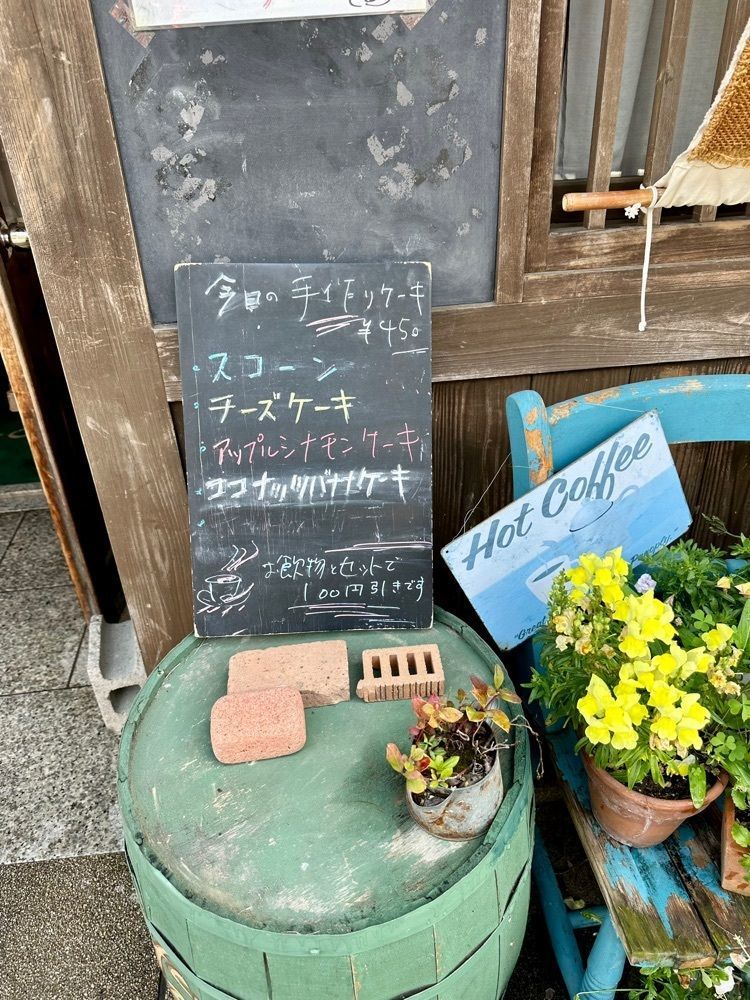 今日の手作りケーキ
¥450
スコーン
チーズケーキ
アップルシナモンケーキ
ココナッツバナナケーキ
お飲物とセットで
100円引きです
Hot Coffee
"Great